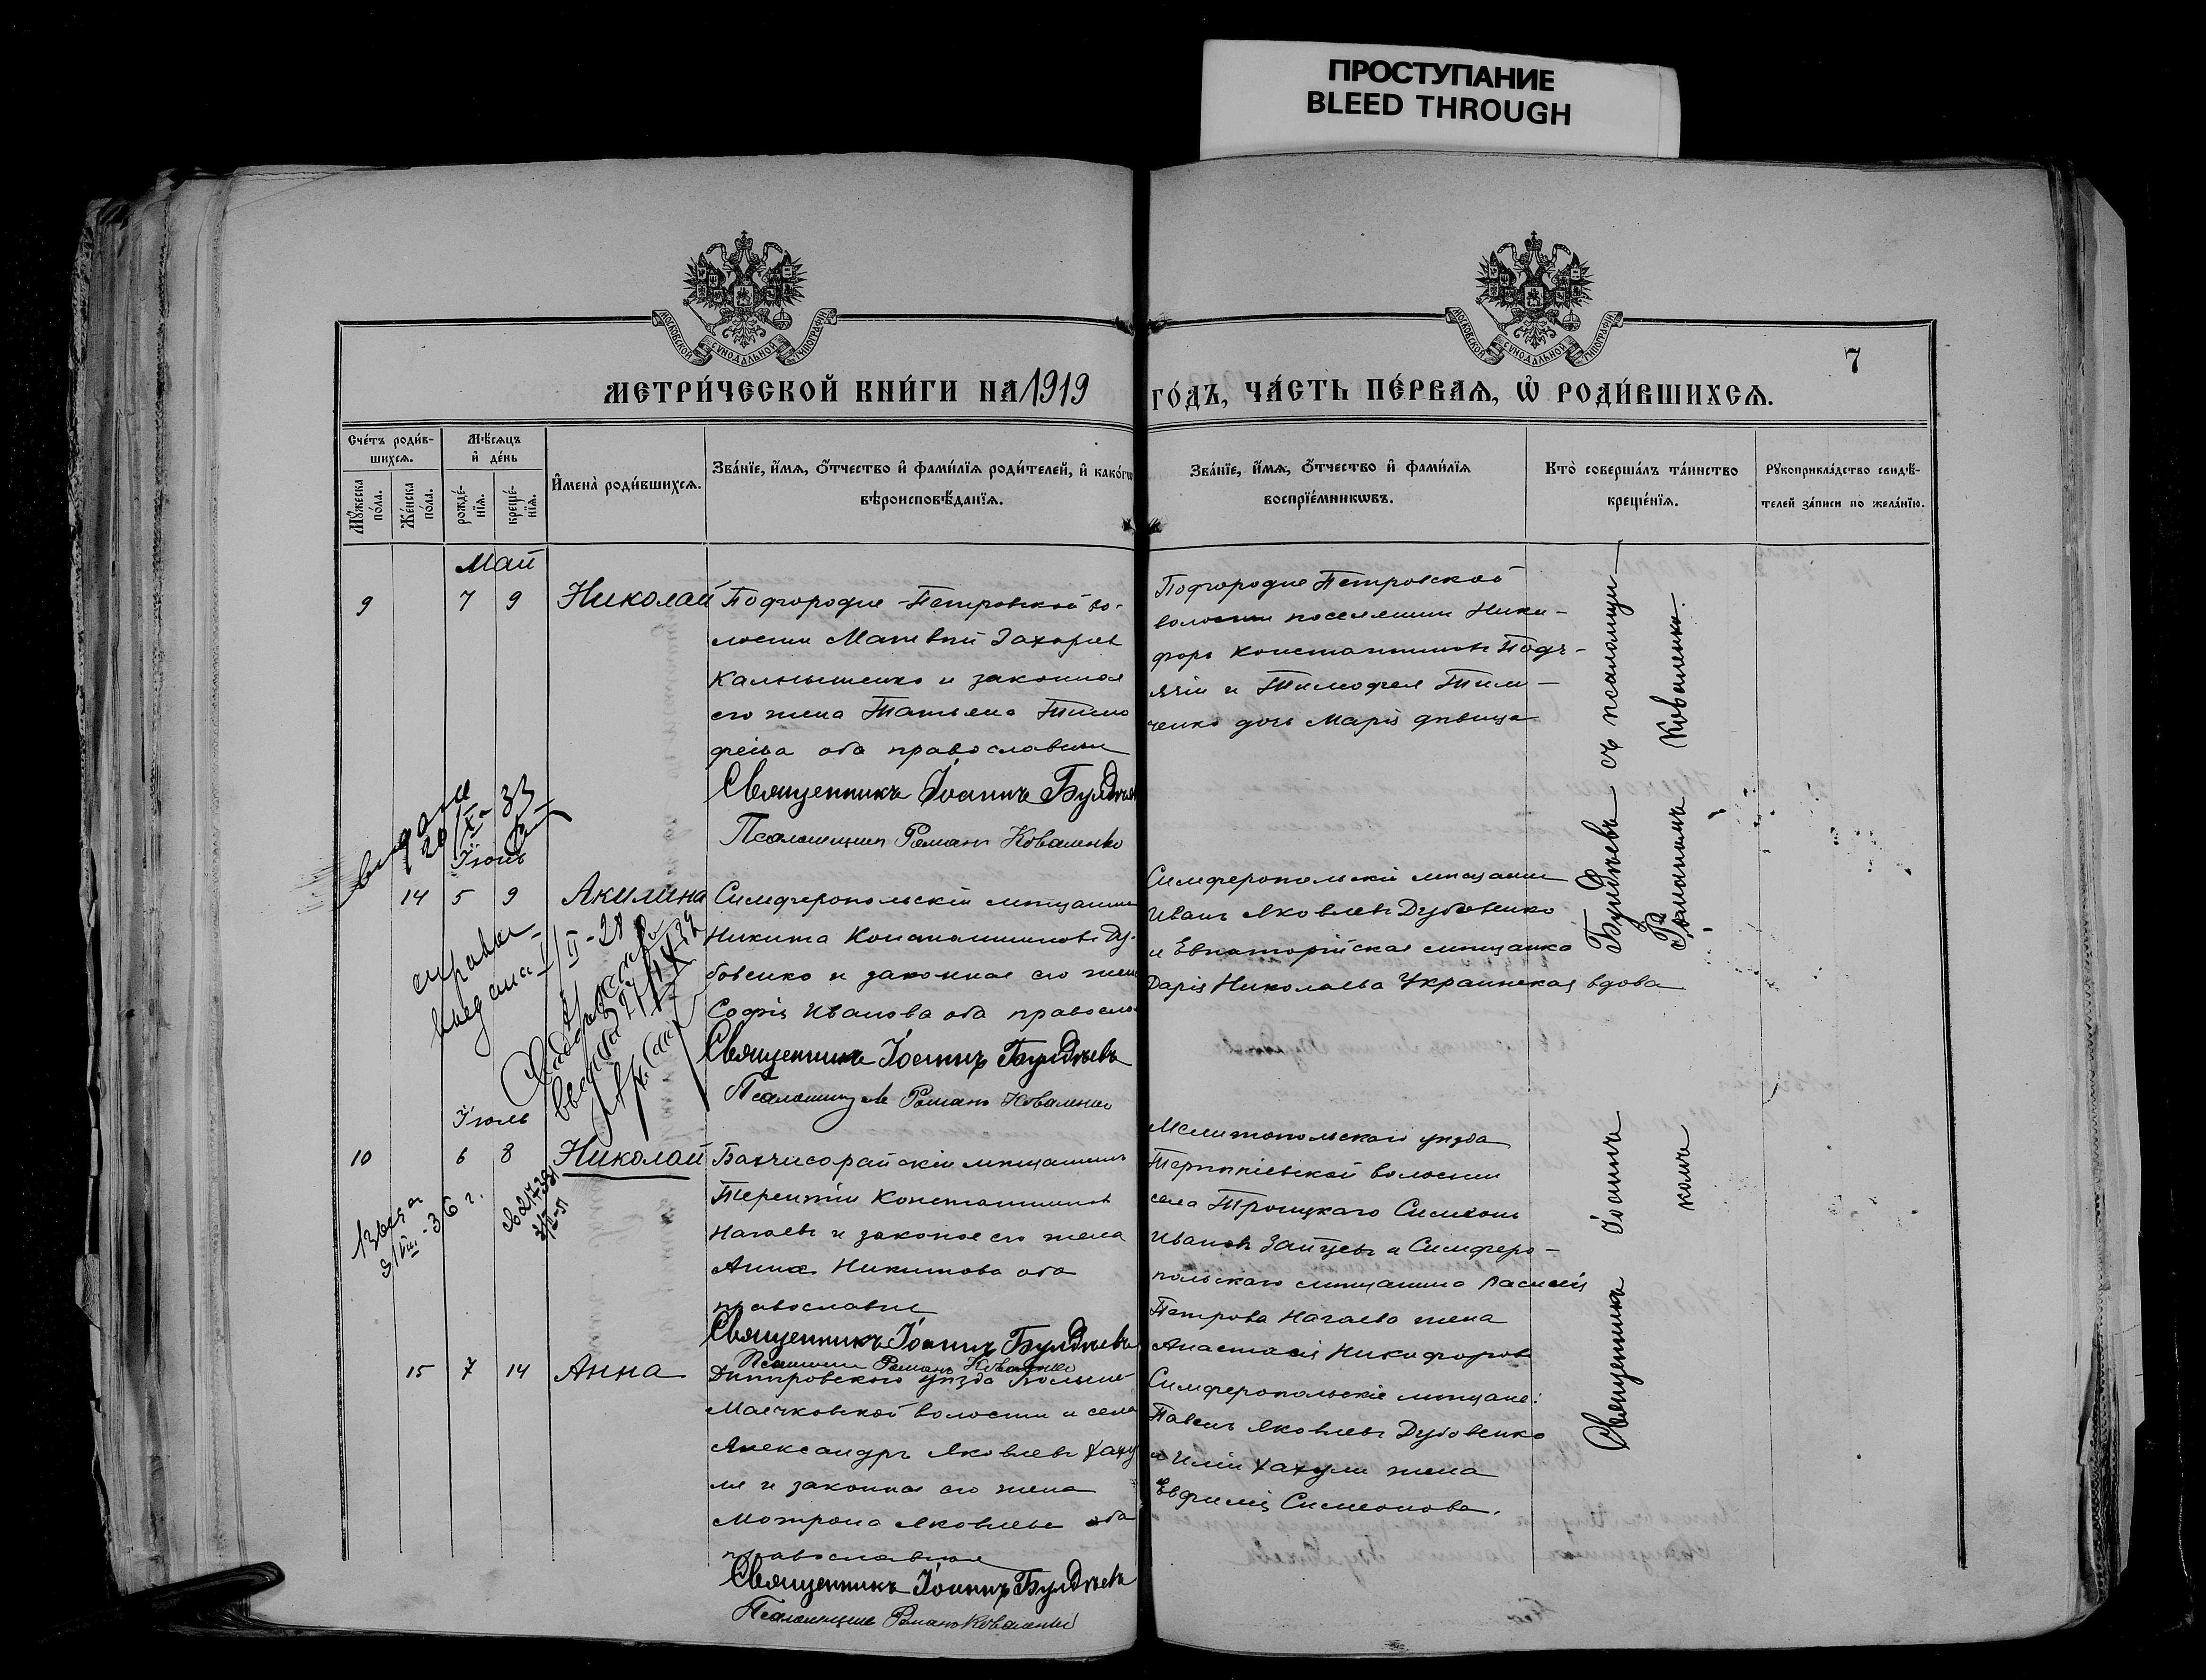 ПРОСТУПАНИЕ
BLEED THROUGH
МОСКОВСКОЙ СѴНОДАЛЬНОЙ ТИПОГРАФІИ
МОСКОВСКОЙ СѴНОДАЛЬНОЙ ТИПОГРАФІИ
7
МЕТРИ́ЧЕСКОЙ КНИ́ГИ НА 1919 ГО́ДЪ, ЧА́СТЬ ПЕ́РВАЯ, Ѡ҆ РОДИ́ВШИХСЯ.
Сче́тъ роди́в-
шихсѧ.
Мꙋ́жеска по́ла.
Же́нска по́ла.
Мѣ́сѧцъ
и҆ де́нь
рожде́-
нїѧ.
креще́-
нїѧ.
И҆мена̀ роди́вшихсѧ.
Зва́нїе, и҆́мѧ, ѻ҆́тчество и҆ фами́лїѧ роди́телей, и҆ како́гѡ
вѣроисповѣ́данїѧ.
Зва́нїе, и҆́мѧ, ѻ҆́тчество и҆ фами́лїѧ
воспрїе́мникѡвъ.
Кто̀ соверша́лъ та́инство
креще́нїѧ.
Рꙋкоприкла́дство свидѣ́-
телей за́писи по жела́нїю.
Май
9 7 9 Николай
Подгородне-Петровской во-
лости Матвѣй Захаріевъ
Калнышенко и законная
его жена Татьяна Тимо
феева оба православны
Священникъ Іоаннъ Булдыевъ
Псаломщикъ Романъ Коваленко
Подгородне Петровской
волости поселянинъ Ники-
форъ Константиновъ
и Тимофея Тим-
ченко дочь Марія дѣвица
выдана
20/X 33
Іюнь
14 5 9 Акилина
Симферопольскій мѣщанинъ
Никита Константиновъ Ду-
бовенко и законная его жена
Софія Иванова оба правосла
Священникъ Іоаннъ Булдыевъ
Псаломщикъ Романъ Коваленко
Симферопольскій мѣщанинъ
Иванъ Яковлевъ Дубовенко
и Евпаторійская мѣщанка
Дарія Николаева Украинская вдова
справка
выдана
II-28
Іюль
10 6 8 Николай
Бахчисарайскій мѣщанинъ
Терентій Константиновъ
Нагаевъ и законная его жена
Анна Никитова оба
православные
Священникъ Іоаннъ Булдыевъ
Псаломщикъ Романъ Коваленко
Мелитопольскаго уѣзда
волости
села Троицкаго Симеонъ
Ивановъ Зайцевъ и Симферо-
польскаго мѣщанина Василія
Петрова Нагаева жена
Анастасія Никифорова
VIII-36 г.
15 7 14 Анна
Днѣпровскаго уѣзда Больше-
Маячковской волости и села
Александръ Яковлевъ Хаху
ля и законная его жена
Мотрона Яковлева оба
православные
Священникъ Іоаннъ Булдыевъ
Псаломщикъ Романъ Коваленко
Симферопольскіе мѣщане:
Павелъ Яковлевъ Дубовенко
и Иліи Хахули жена
Евфимія Симеонова.
Священникъ Іоаннъ Булдыевъ съ псаломщи-
комъ Романомъ Коваленко.